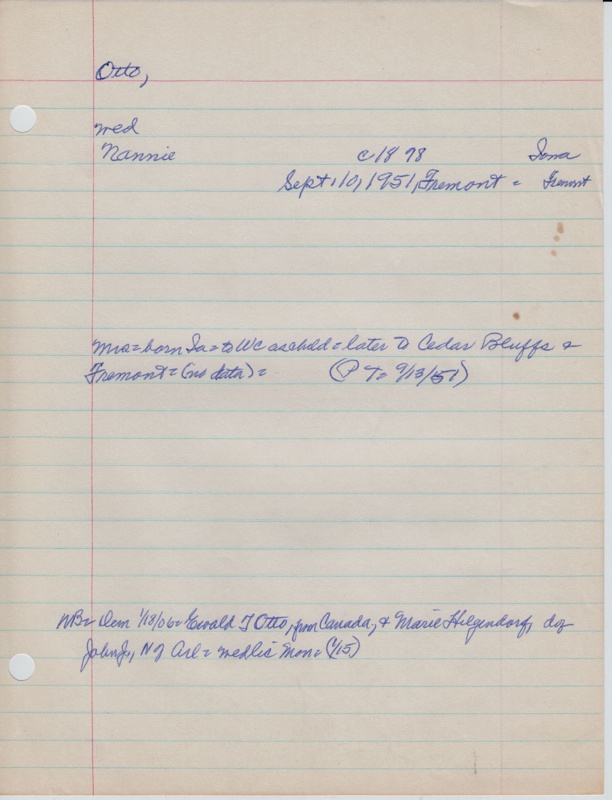 Otto,
wed
Nannie c 1898 Iowa
Sept. 10, 1951, Fremont = Fremont
Mrs = born Ia = to WC as child = later to Cedar Bluffs &
Fremont = (no data) = (P T = 9/13/51)
NB = Dem 1/18/06 = Ewald J Otto, from Canada, & Marie Hilgendorf, dg
John J, N of Arl = wed lic Mon = (1/15)